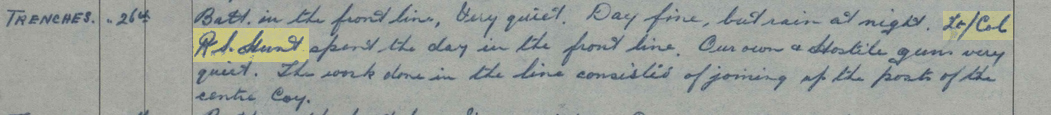 TRENCHES. " 26th Batt. in the front line, Very quiet. Day fine, but rain at night. Lt/Col
R.S. Hunt spent the day in the front line. Our own & Hostile guns very
quiet. The work done in the line consisted of joining up the posts of the
centre Coy.